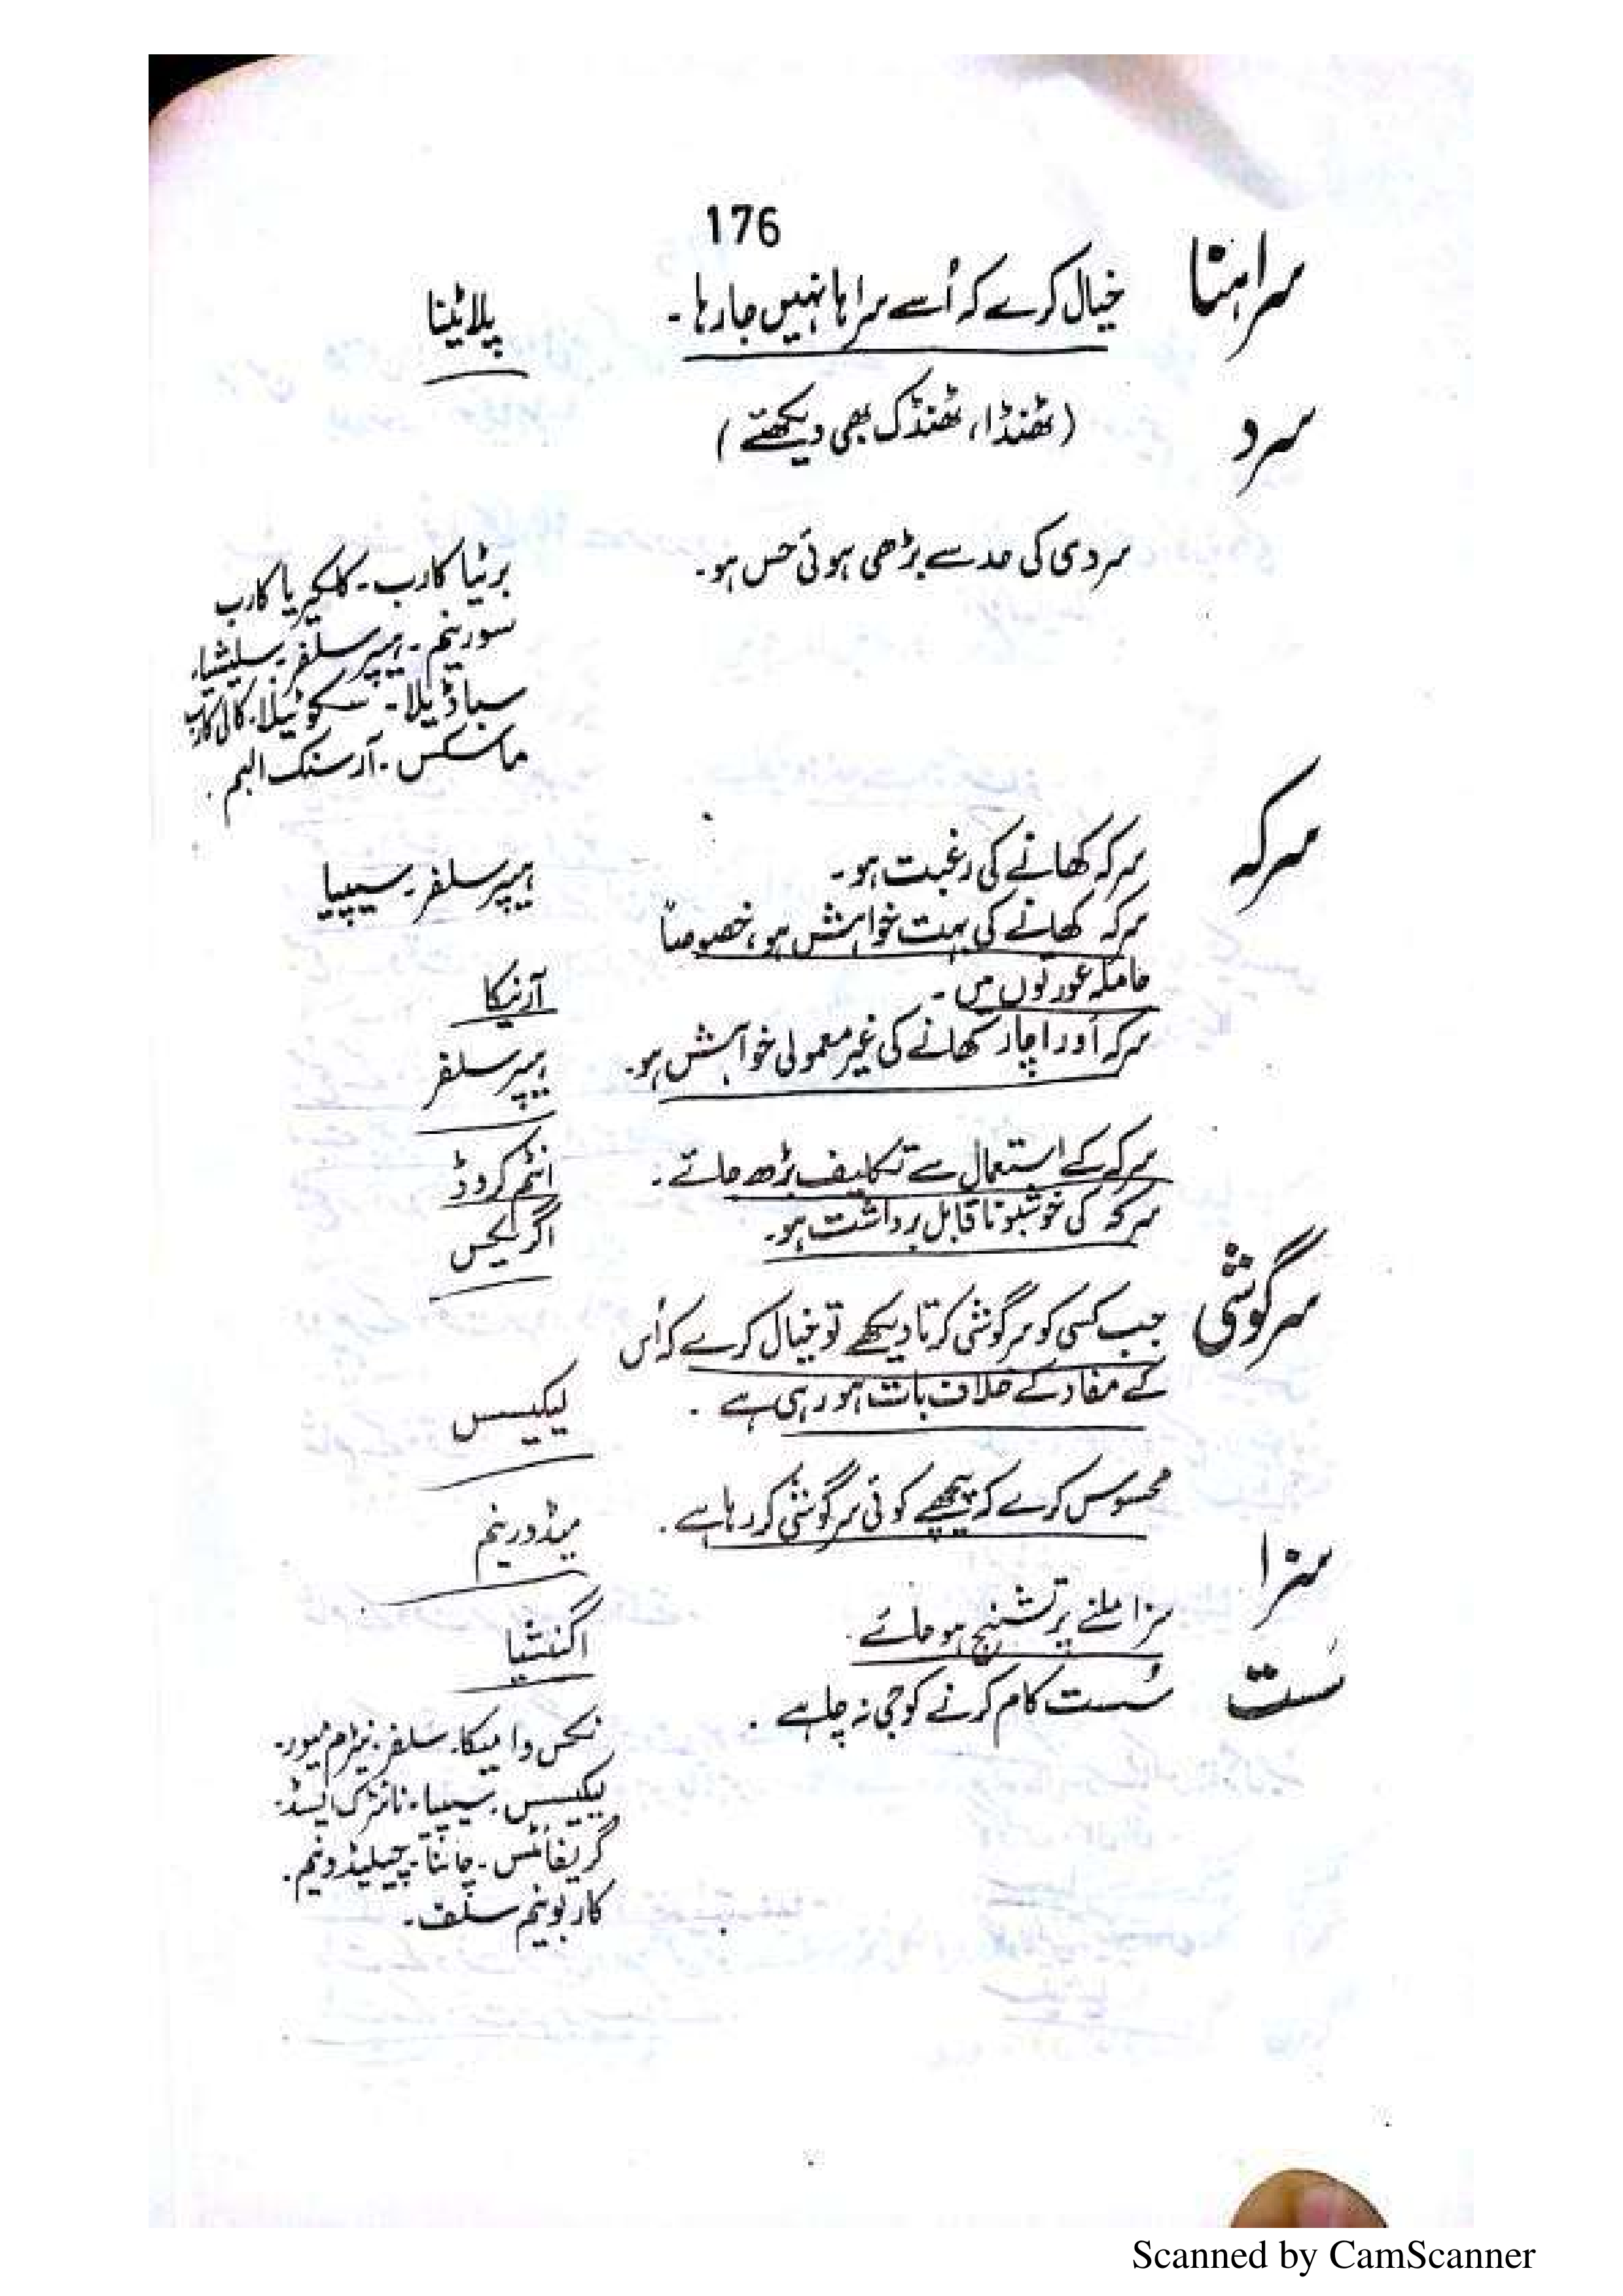 176
سراہنا
خیال کرے کہ اُسے سراہا نہیں جا رہا ۔ پلاٹینا
سرد
(ٹھنڈا، ٹھنڈک بھی دیکھئے)
سردی کی حد سے بڑھی ہوئی حس ہو۔ برئیٹا کارب ۔ کلکیریا کارب
سورینم ۔ ہیپر سلفر ۔ سلیشیا۔
سباڈیلا ۔ سکوئیلا۔ کالی کارب
ماسکس ۔ آرسنک البم ۔
سرکہ
سرکہ کھانے کی رغبت ہو۔ ہیپر سلفر ۔ سیپیا
سرکہ کھانے کی بہت خواہش ہو، خصوصاً
حاملہ عورتوں میں ۔ آرنیکا
سرکہ اور اچار کھانے کی غیر معمولی خواہش ہو۔ ہیپر سلفر
سرکے کے استعمال سے تکلیف بڑھ جائے ۔ انٹم کروڈ
سرکہ کی خوشبو ناقابل برداشت ہو۔ اگریکس
سرگوشی
جب کسی کو سرگوشی کرتا دیکھے تو خیال کرے کہ اُس
کے مفاد کے خلاف بات ہو رہی ہے ۔ لیکیسس
محسوس کرے کہ پیچھے کوئی سرگوشی کر رہا ہے ۔ میڈورینم
سزا
سزا ملنے پر تشنج ہو جائے ۔ اگنشیا
سُست
سُست کام کرنے کو جی نہ چاہے ۔ نکس وامیکا۔ سلفر ۔ نیٹرم میور۔
لیکیسس ۔ سیپیا ۔ نائٹرک ایسڈ۔
گریفائٹس ۔ چائنا ۔ چیلیڈونیم ۔
کاربونیم سلف ۔
Scanned by CamScanner